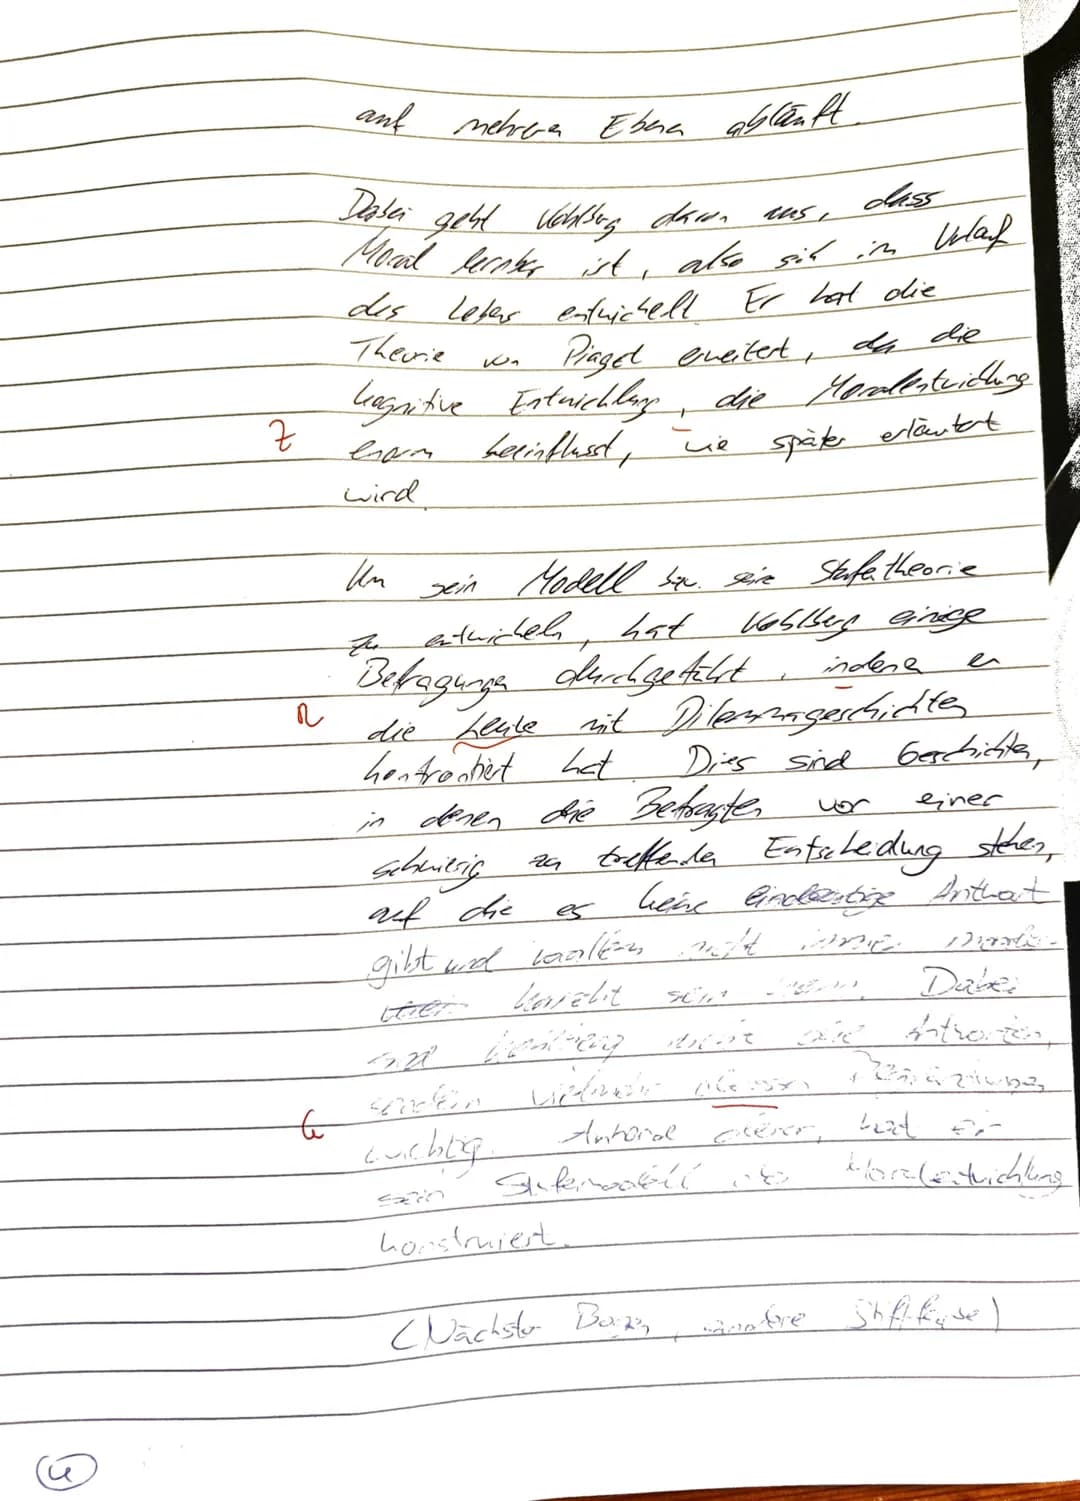 auf mehreren Ebenen abläuft.
Dabei geht Kohlberg davon aus, dass
Moral lernbar ist, also sich im Verlauf
des Lebens entwickelt. Er hat die
Theorie von Piaget erweitert, da die
kognitive Entwicklung, die Moralentwicklung
Z enorm beeinflusst, wie später erläutert
wird.
Um sein Modell bzw. seine Stufentheorie
zu entwickeln, hat Kohlberg einige
Befragungen durchgeführt, indem er
R die Leute mit Dilemmageschichten
konfrontiert hat. Dies sind Geschichten,
in denen die Befragten vor einer
schwierig zu treffenden Entscheidung stehen,
auf die es keine eindeutige Antwort
gibt und nicht immer
sein Dabei
sind nicht die Antworten,
sondern vielmehr dessen
G wichtig. Anhand derer, hat er
sein Stufenmodell der Moralentwicklung
konstruiert.
(Nächster Bogen, andere Stiftfarbe)
4